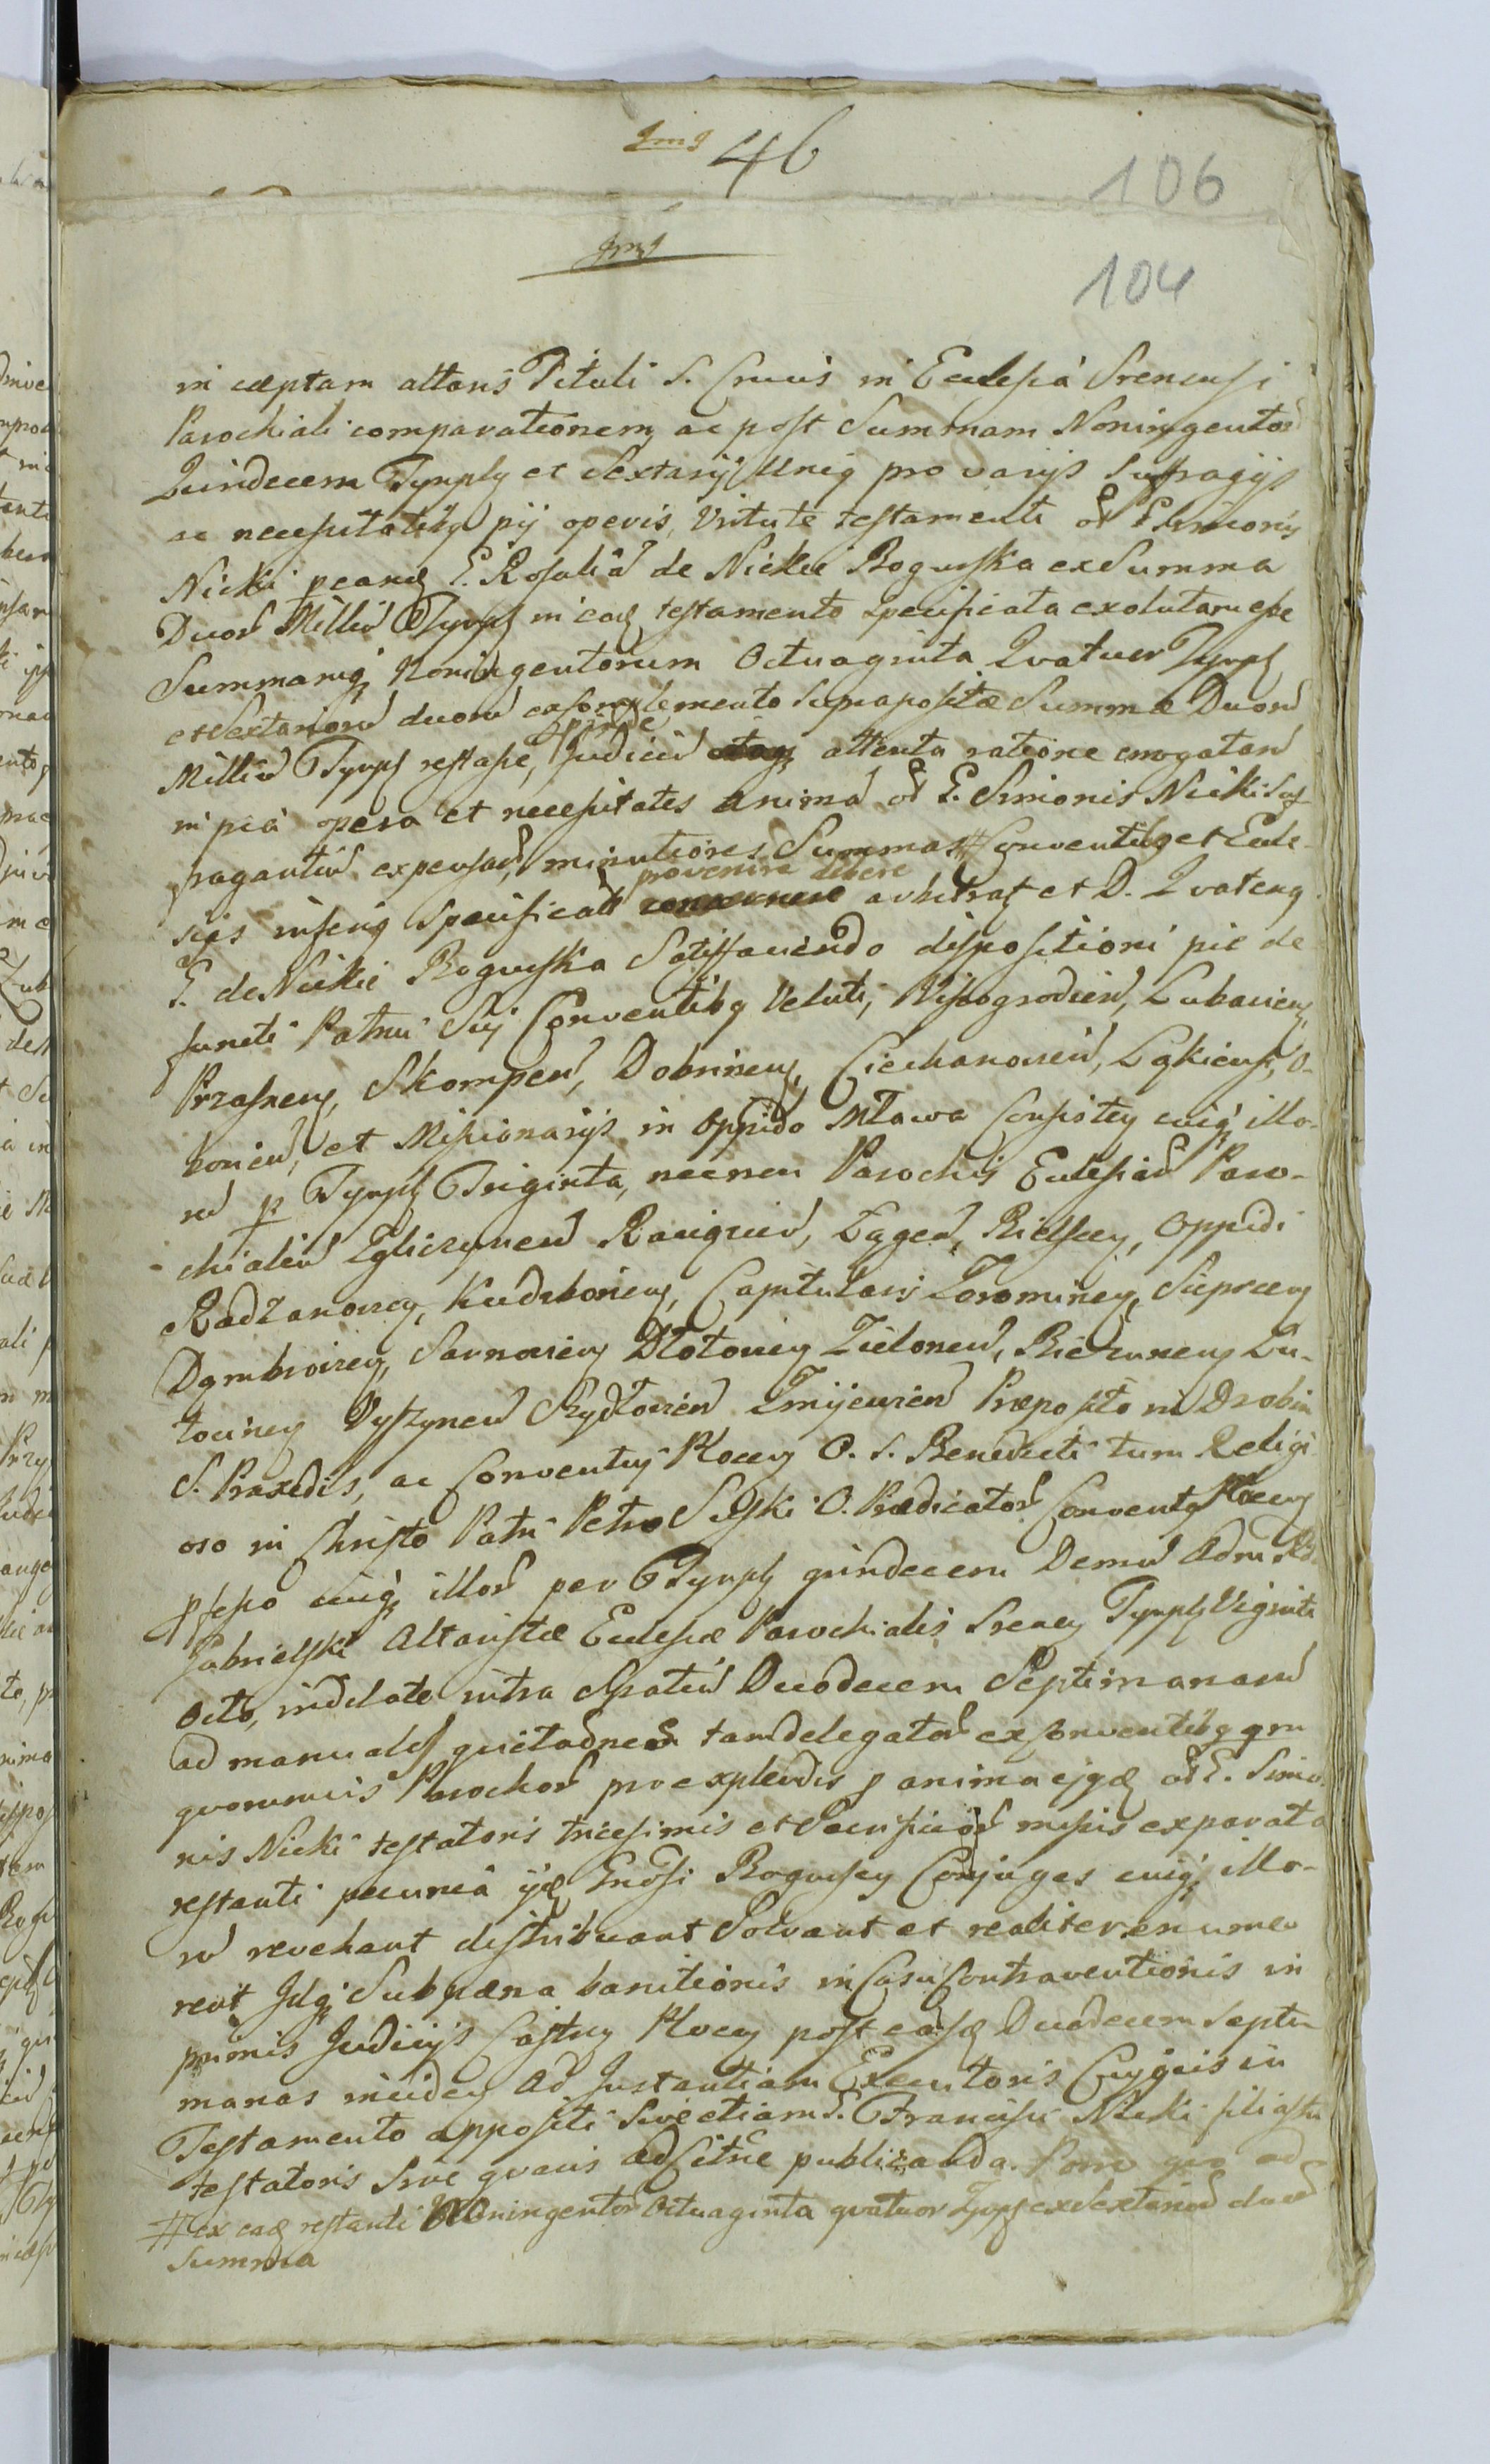 46
106
104
in cæptam altaris Tituli S. Crucis in Ecclesia Srenensi
Parochiali comparationem ac post Summam Noningentor
Quindecem Tynph et Sextarij Unig pro varijs Suffragijs
ac necessitatibq pij operis, Vitute testamenti
Nicki peandʒ E. Rosalia de Nickie Boguska ex Summa
Duor Milliu Tynph in eadʒ testamento specificata exolutam esse
Summamqʒ Noningentorum Octuaginta Qvatuor Tynph
et Sextarioru duoru ex complemento Supraposita Summæ Duoru
Milliu Tynph restasse, proinde Judiciu attenta ratione erogatar
in pia opera et necessitates anima E. Simonis Nicki Suf-
fragantiu expensar, minutiores Summas # Conventibq et Eccle-
sijs inferiq specificatis provenire debere arbitrat et D. Qvatenq
E. de Nickie Boguska Satisfaciendo dispositioni pie de
functi Patrui Sui Conventibq Veluti, Vissogrodien, Lubavien,
Przasnen, Skompen, Dobrinen, Ciechanovien, Łąkiens, O-
bonien, et Missionarijs in Oppido Mława Consisten cuiqʒ illo-
ru p Tynph Triginta, necnon Parochis Ecclesiar Paro-
chialiu Egliczynen Raciqzien, Łęgen, Bielscen, Oppidi
Radzanovien, Kuczborien, Capitularis Zorominen, Sieprcen
Dąmbrovien, Sarnovien Dłotovien Zielonen, Biezunen Lu-
tocinen Vyszynen Szydłovien Zmijewien Præposito in Drobin
S. Praxedis, ac Conventuj Plocen O. S. Benedicti tum Religi-
oso in Christo Patri Petro Selski O. Prædicator Conventq Plocen
pfesso cuiqʒ illor per Tynph quindecem Demu Adm Rdo
Gabrielski Altaristæ Ecclesiæ Parochialis Srenen Tynph Viginti
Octo, indelate intra Spatiu Duodecem Septimanaru
ad manuales quietaones tam delegator ex Conventibq qm
quorumvis Parochor pro explendis p anima ejqʒ E. Simo-
nis Nicki testatoris tricesimis et Sacrificior missis exparata
restanti pecunia ijdʒ Gnosi Boguscy Conjuges cuiqʒ illo-
ru revehant distribuant Solvant et realiter enume
rent Idqʒ Sub pæna banitionis in Casu Contraventionis in
primis Judicijs Castren Plocen post easdʒ Duodecem Septi-
manas inciden Ad Instantiam Executoris Cujqvis in
Testamento appositi Sive etiam E. Francisci Nicki filiastri
testatoris Sive qvavis ad Citne publicanda. Porro qvo ad
# ex eadʒ restanti Noningentor Octuaginta qvatuor Tynph et Sextarior duor
Summa